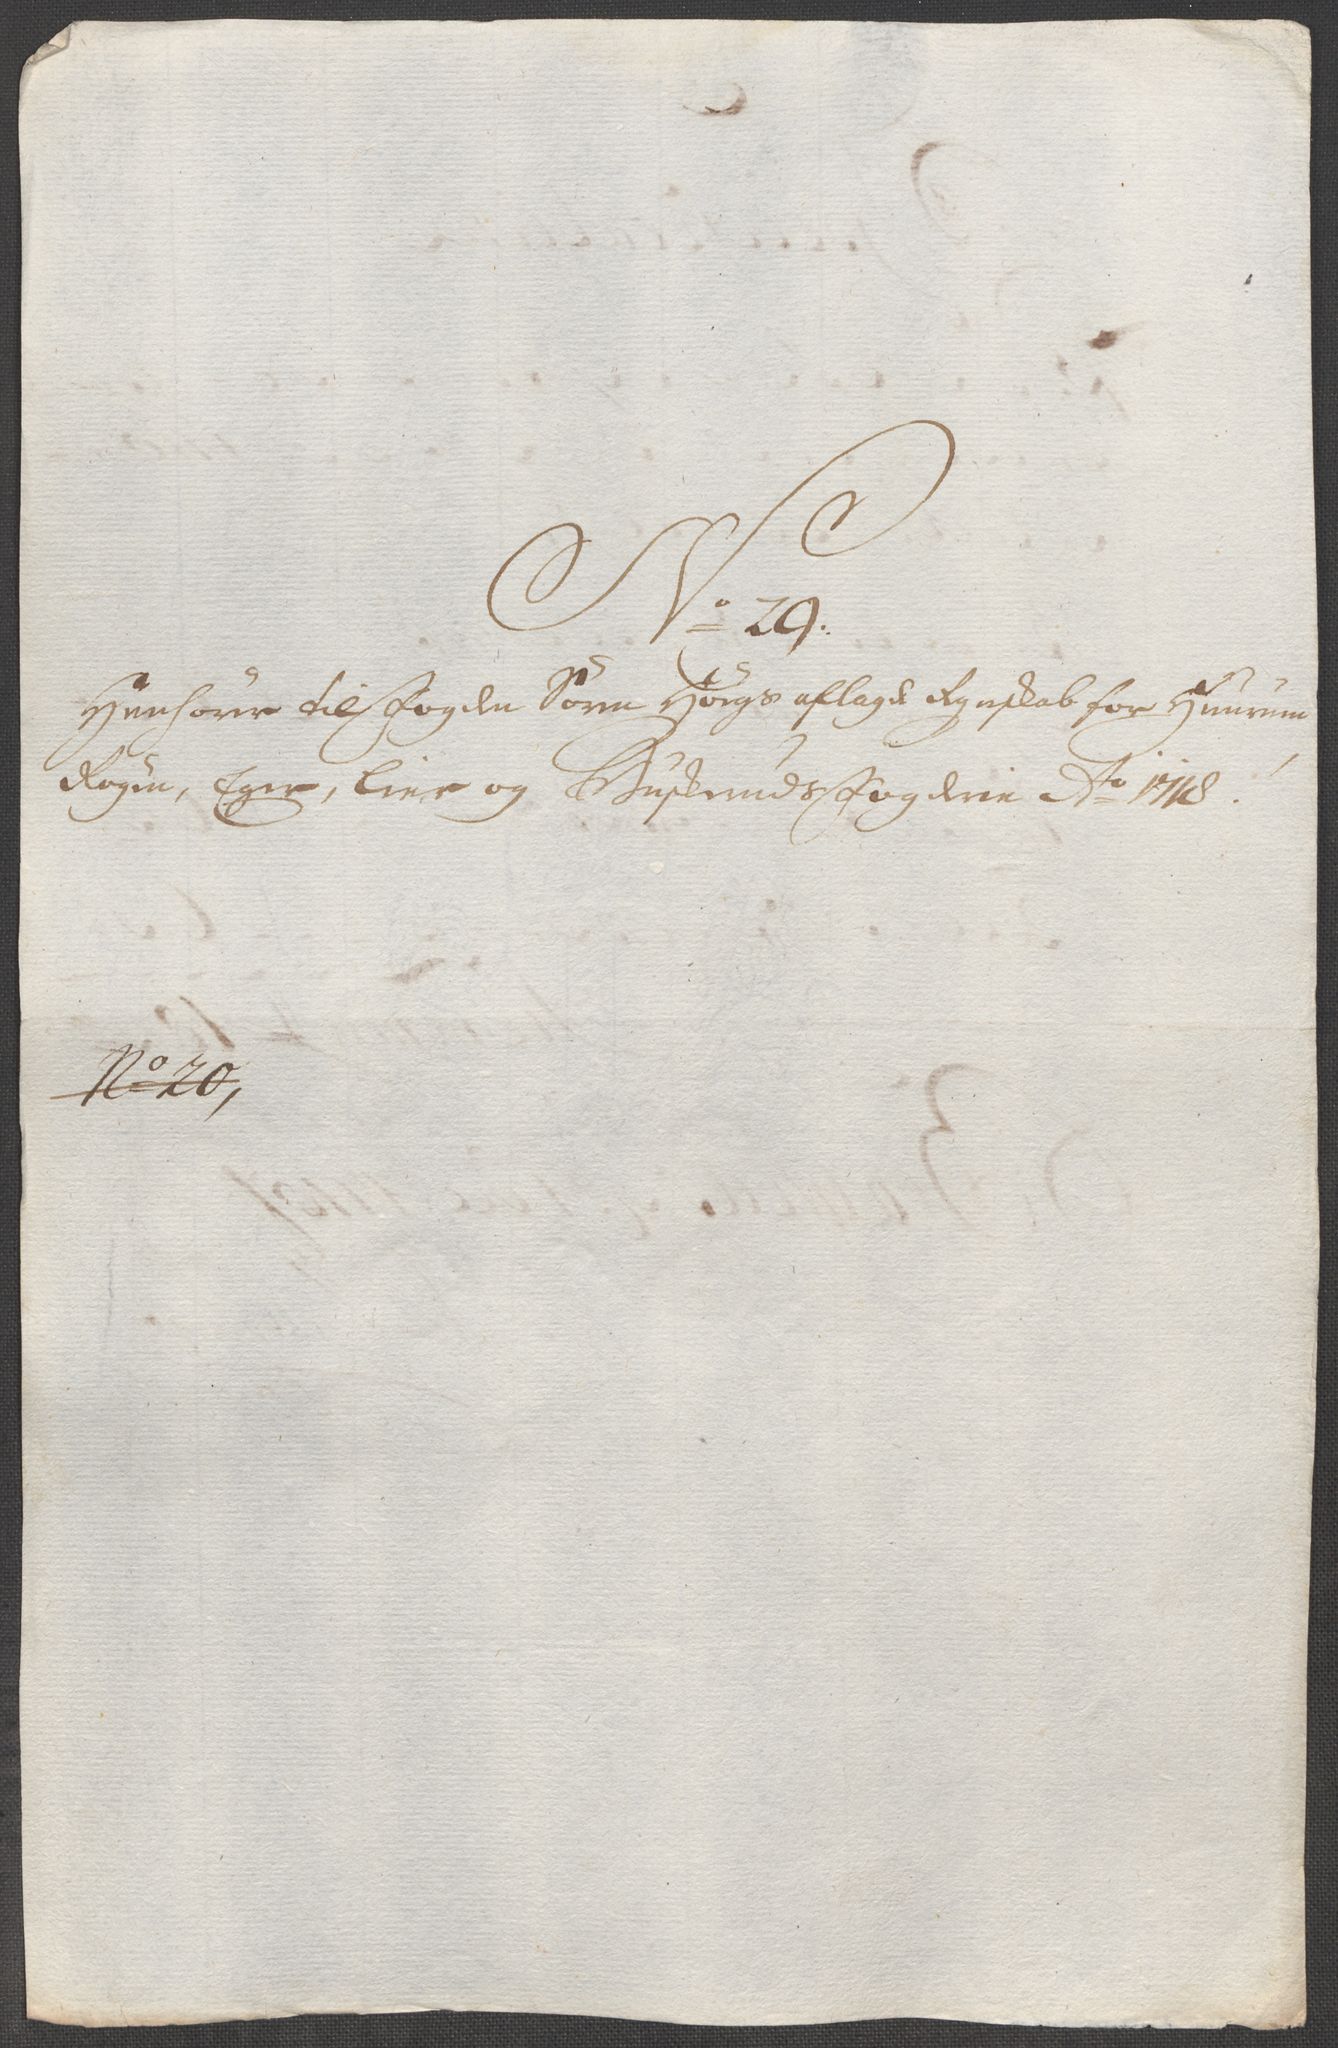 No 29.
Henhörer til Fogden Sörn Höegs aflagde Regnskab for Huurum,
Røgen, Eger, Lier og Buskeruds Fogderie Ao 1718.
No 20,